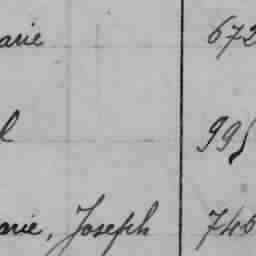 arie 672
l 995
arie, Joseph 746